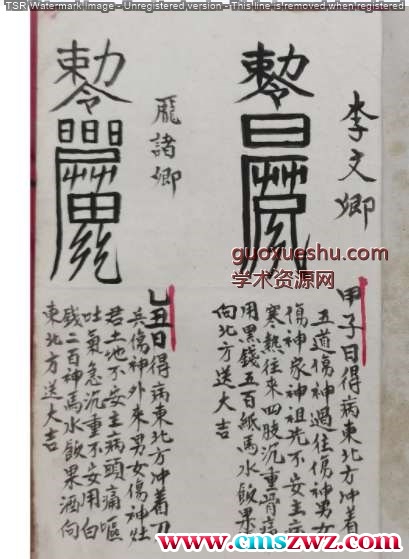 TSR Watermark Image - Unregistered version - This line is removed when registered
敕令
李文卿
甲子日得病東北方冲着
五道傷神過往傷神男女
傷神家神祖先不安主病
寒熱往來四肢沉重骨痛
用黑錢五百纸馬水飲果
向北方送大吉
敕令
龎諸卿
乙丑日得病東北方冲着刀
兵傷神外來男女傷神灶
君土地不安主病頭痛嘔
吐氣急沉重不安用白
錢二百神馬水飲果酒向
東北方送大吉
guoxueshu.com
学术资源网
www.cmszwz.com